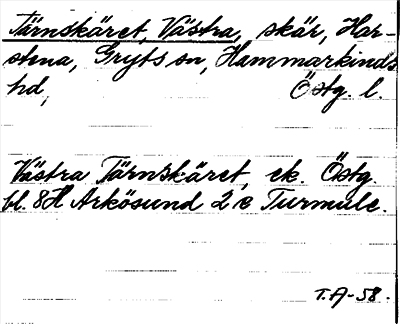 Tärnskäret, Västra, skär, Har-
stena, Gryts sn, Hammarkinds
hd, Östg. l.
Västra Tärnskäret, ek. Östg.
bl. 8H Arkösund 2 e Turmule.
T.A-58.